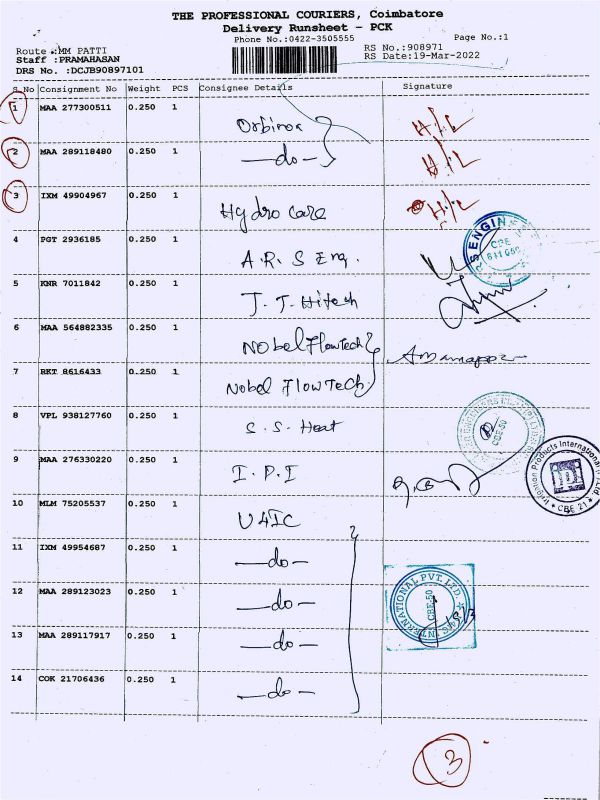 THE PROFESSIONAL COURIERS, Coimbatore
Delivery Runsheet - PCK
Phone No.:0422-3505555
Page No.:1
Route :MM PATTI
RS No.:908971
Staff :PRAMAHASAN
RS Date:19-Mar-2022
DRS No. :DCJB90897101
S.No Consignment No Weight PCS Consignee Details Signature
1 MAA 277300511 0.250 1 H/L
2 MAA 289118480 0.250 1 —do— H/L
3 IXM 49904967 0.250 1 Hydro care H/L
4 PGT 2936185 0.250 1 A.R.S Eng.
5 KNR 7011842 0.250 1 J.T.Hitech
6 MAA 564882335 0.250 1 Nobel Flowtech
7 BKT 8616433 0.250 1 Nobel Flow Tech
8 VPL 938127760 0.250 1 S.S. Heat
9 MAA 276330220 0.250 1 I.P.I
Irrigation Products International
CBE 21
10 MLM 75205537 0.250 1 U4IC
11 IXM 49954687 0.250 1 —do—
12 MAA 289123023 0.250 1 —do—
INTERNATIONAL PVT. LTD.
CBE-50
13 MAA 289117917 0.250 1 —do—
14 COK 21706436 0.250 1 —do—
3